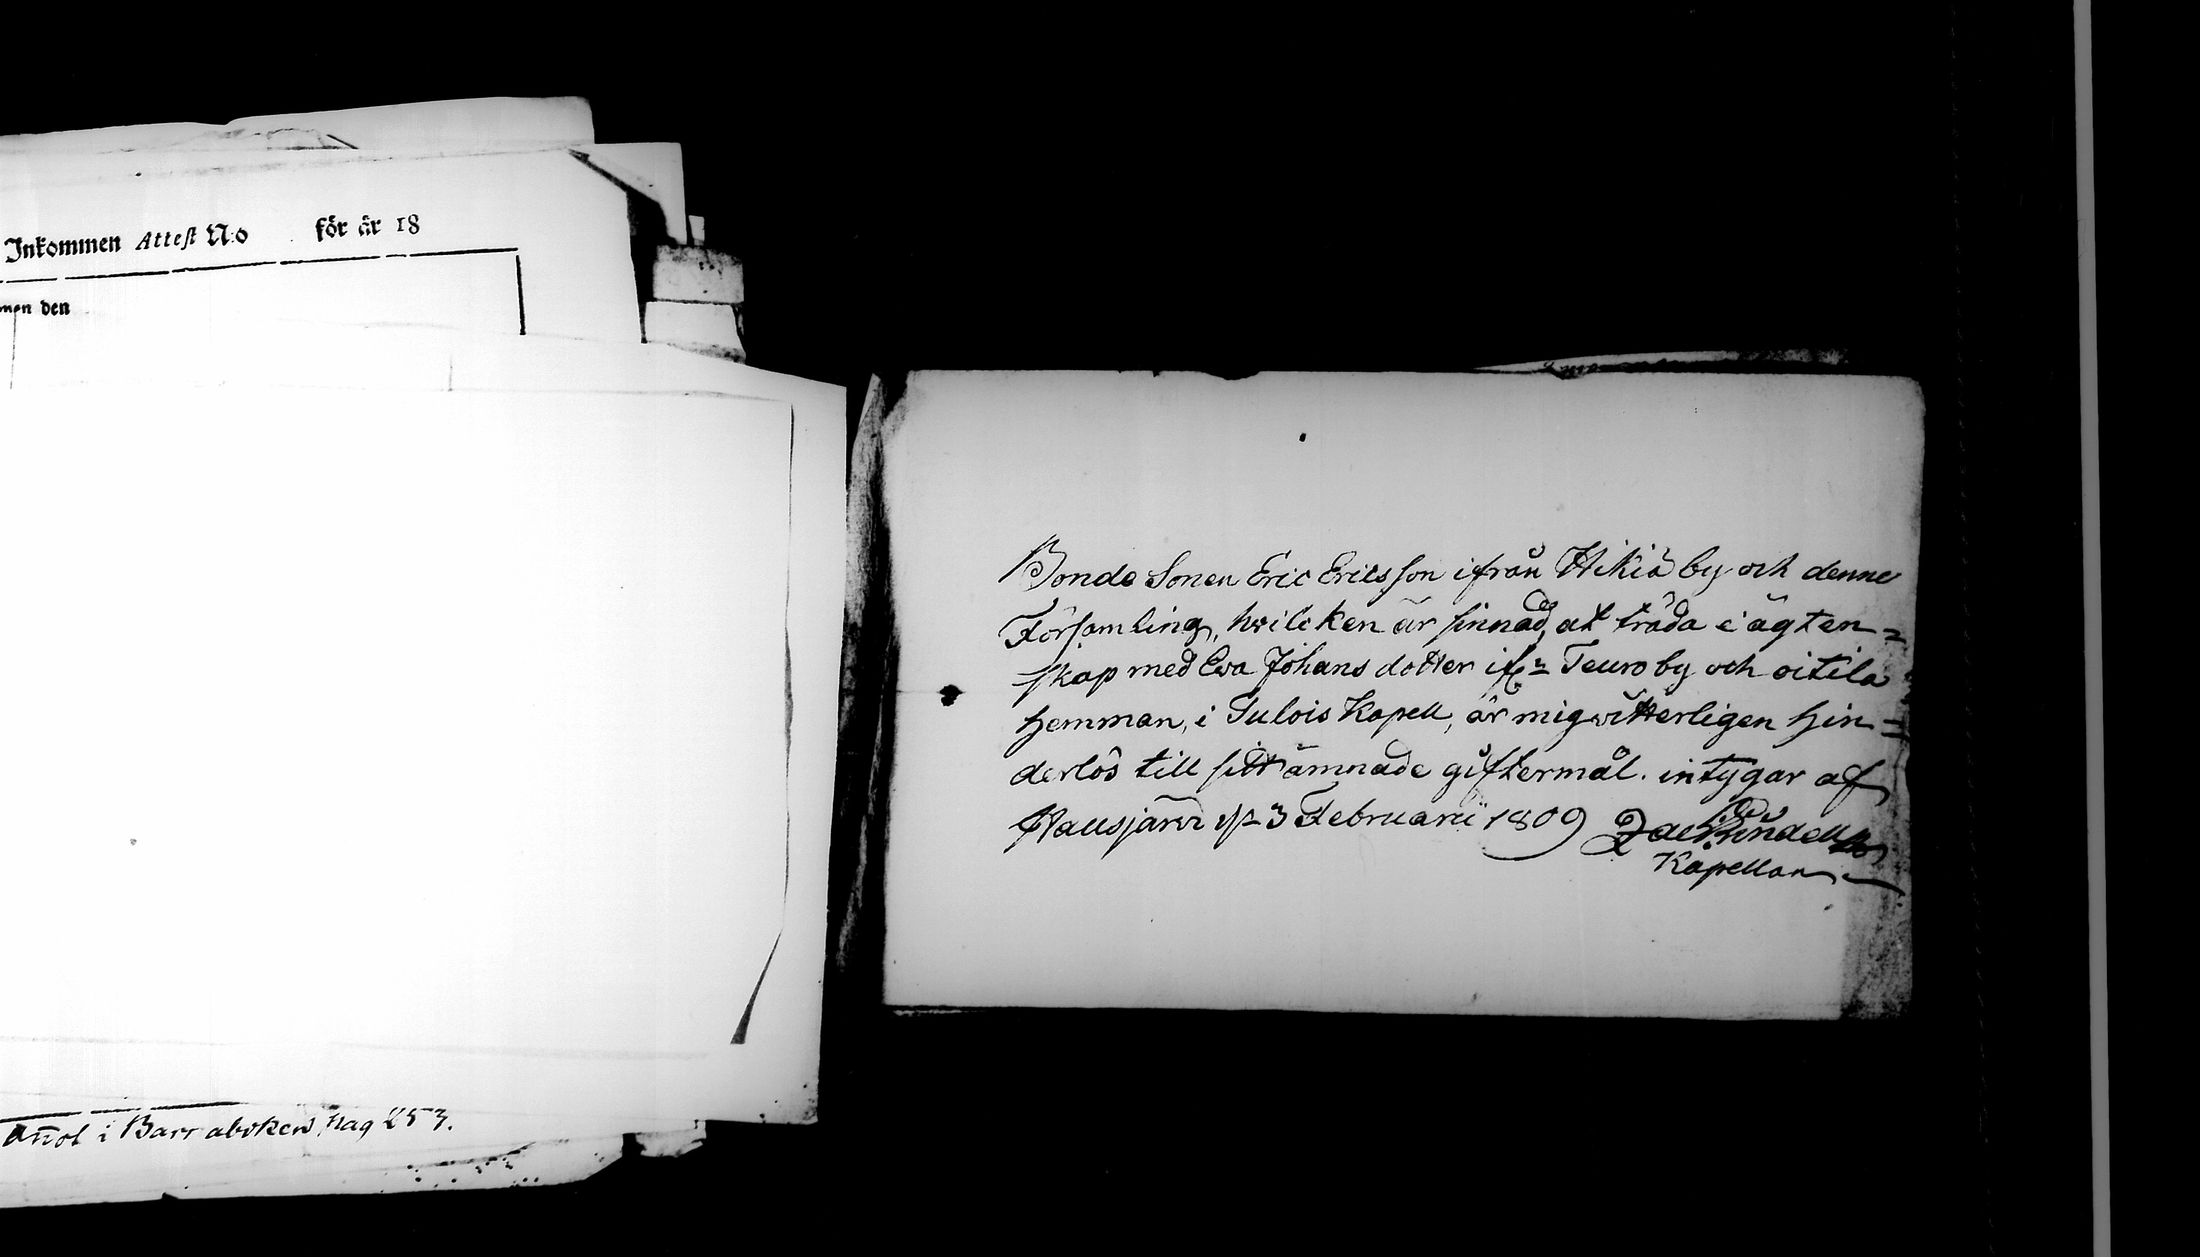 Inkommen Attest N:o för år 18
den
i Barnaboken pag 253.
Bonde Sonen Eric Ericsson ifrån Hikiä by och denne
Församling, hvilcken är sinnad, at träda i ägten=
skap med Eva Johans dotter ifr: Teuro by och oitila
hemman, i Tulois Kapell, är mig vitterligen hin=
derlös till sitt ämnade giftermål. intygar af
Hausjärvi d. 3 Februarii 1809
Kapellan